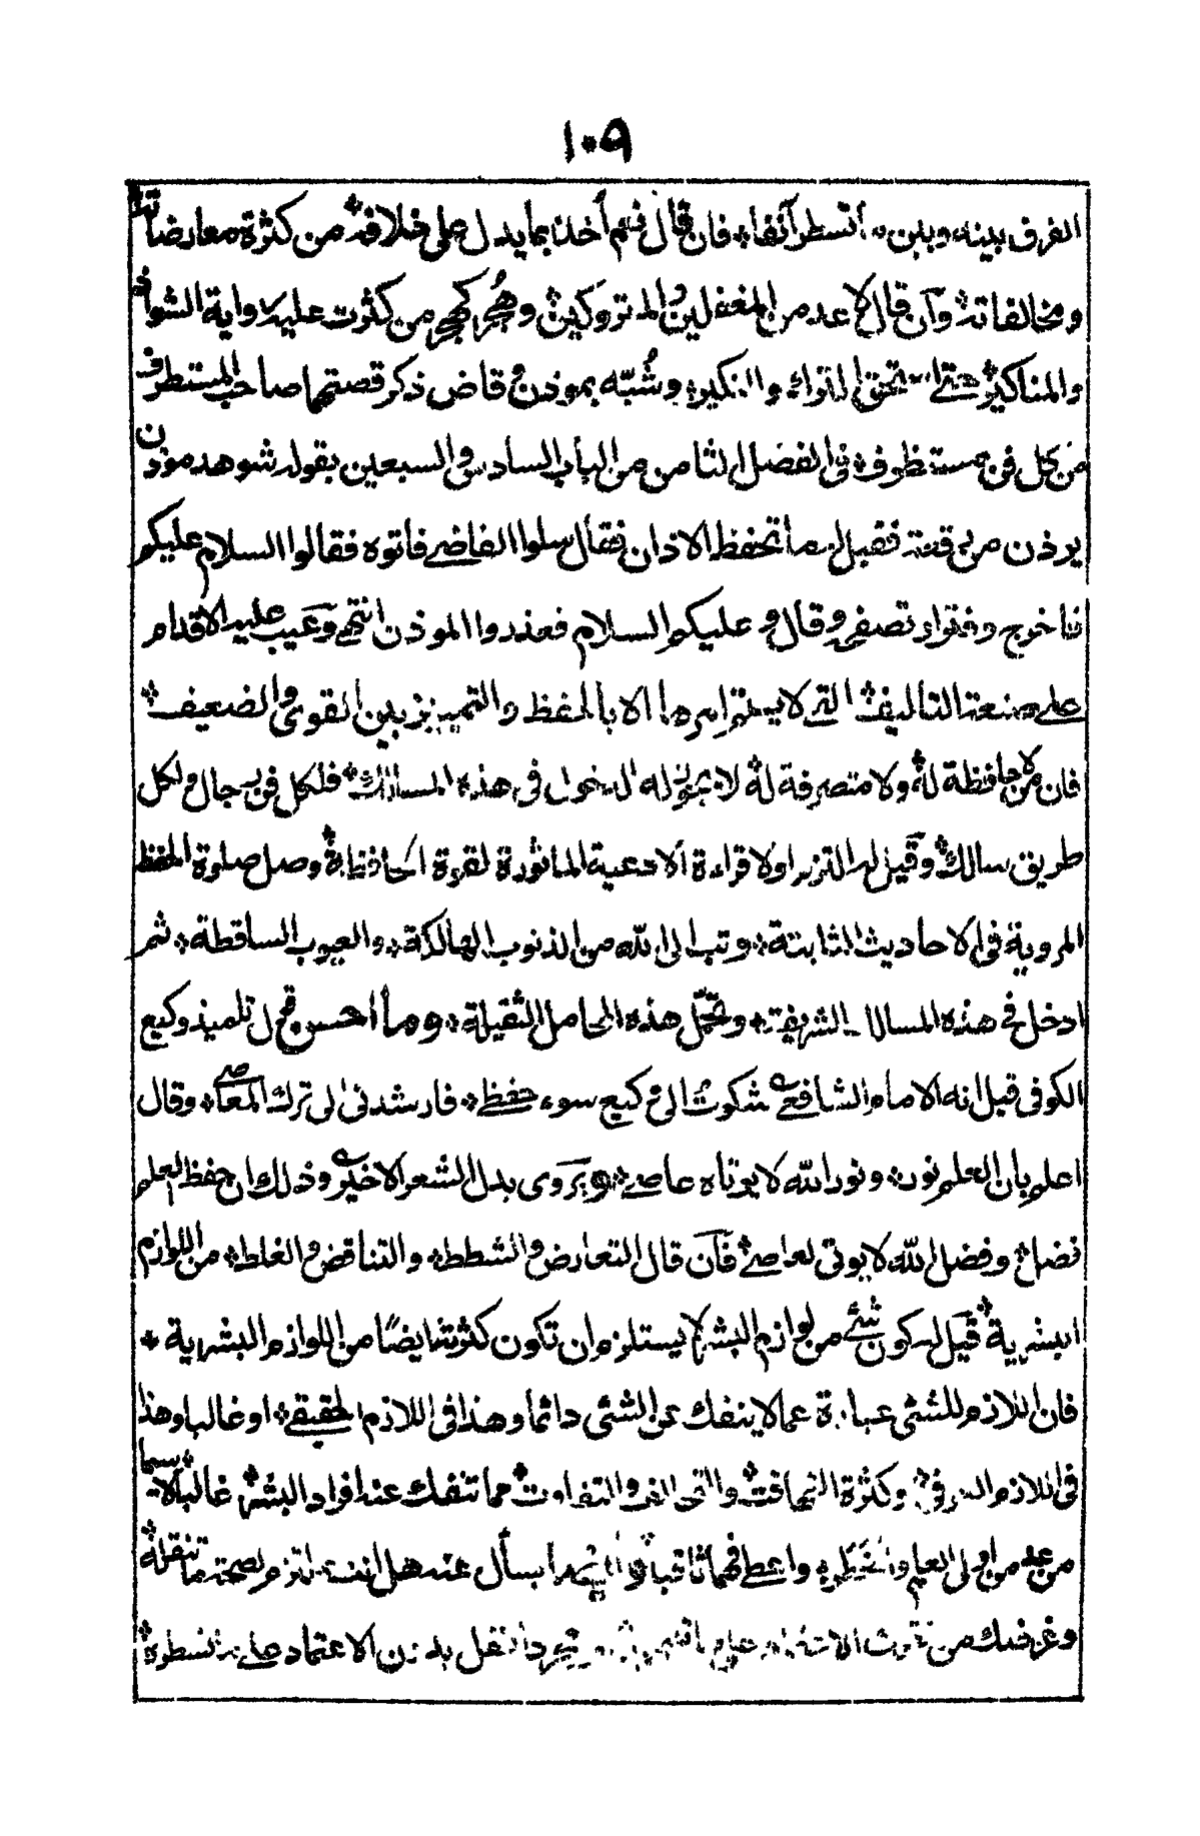 ١٠٩
الفرق بينه وبين ما تسطر آنفا فان قال نعم أخذنا بما يدل على خلافه من كثرة معارضاته
ومخالفاته وآن قال لا عد من المغفلين والمتروكين وهُجر كهجر من كثرت عليه رواية الشواذ
والمناكير حتى استحق الترك والنكير وشُبّه بموذن وقاض ذكر قصتهما صاحب المستطرف
من كل فن مستظرف فى الفصل الثامن من الباب السادس والسبعين بقوله شوهد موذن
يوذن من رقعة فقيل له ما تحفظ الاذان فقال سلوا القاضى فاتوه فقالوا السلام عليكم
فاخرج دفترا وتصفح وقال وعليكم السلام فعذروا الموذن انتهى وعيب عليه الاقدام
على صنعة التأليف التى لا يتم امرها الا بالحفظ والتمييز بين القوى والضعيف
فان من لا حافظة له ولا متصرفة له لا يجوز له الدخول فى هذه المسالك فلكل فن رجال ولكل
طريق سالك وقيل له التزم اولا قراءة الادعية الماثورة لقوة الحافظة وصل صلوة الحفظ
المروية فى الاحاديث الثابتة وتب الى الله من الذنوب الهالكة والعيوب الساقطة ثم
ادخل فى هذه المسالك الشريفة وتحمّل هذه المحامل الثقيلة وما أحسن قول تلميذ وكيع
الكوفى قيل انه الامام الشافعى شكوت الى وكيع سوء حفظى فارشدنى الى ترك المعاصى وقال
اعلم بان العلم نور ونور الله لا يوتاه عاصى ويروى بدل الشعر الاخير وذلك ان حفظ العلم
فضل وفضل الله لا يوتى لعاصى فآن قال التعارض والشطط والتناقض والغلط من اللوازم
البشرية قيل له كون شئ من لوازم البشر لا يستلزم ان تكون كثرته ايضًا من اللوازم البشرية
فان اللازم للشئ عبارة عما لا ينفك عن الشئ دائما وهذا فى اللازم الحقيقى او غالبا وهذا
فى اللازم العرفى وكثرة التهافت والتخالف والتفاوت مما تنفك عنه افراد البشر غالبا لا سيما
من عد من اولى العلم والنظر واعطى فهما ثاقبا وا يسأل عنه هل انت ملتزم لصحة ما تنقله
وغرضك من مجرد النقل بدون الاعتماد على ما تسطره